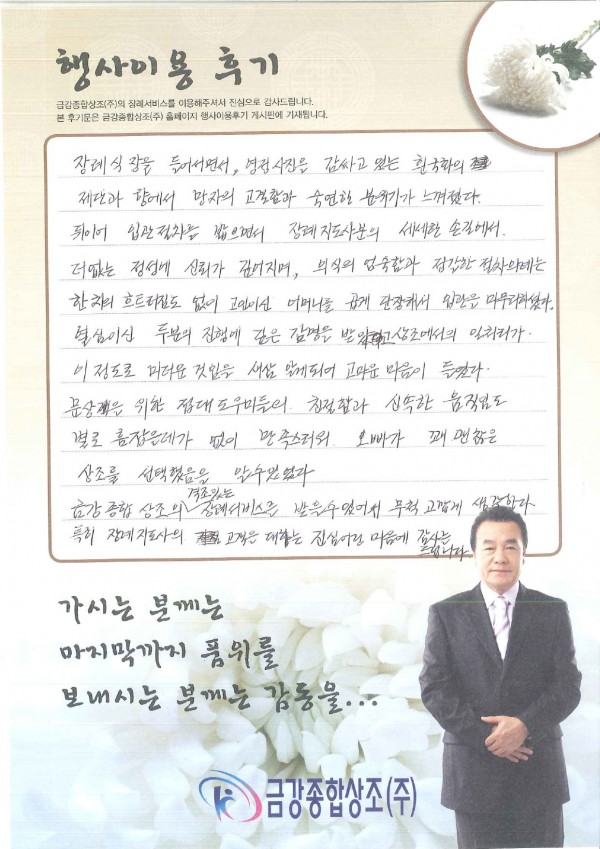 행사이용 후기
금강종합상조(주)의 장례서비스를 이용해주셔서 진심으로 감사드립니다.
본 후기문은 금강종합상조(주) 홈페이지 행사이용후기 게시판에 기재됩니다.
장례식장을 들어서면서, 영정사진을 감싸고 있는 흰국화의
제단과 향에서 망자의 고결함과 숙연한 분위기가 느껴졌다.
뒤이어 입관절차를 밟으면서 장례지도사분의 세세한 손길에서.
더없는 정성에 신뢰가 깊어지며, 의식의 엄숙함과 정갈한 절차의례는
한치의 흐트러짐도 없이 고인이신 어머니를 곱게 단장해서 입관을 마무리하셨다.
열심이신 두분의 진행에 깊은 감명을 받았고 상조에서의 일처리가.
이 정도로 미더운 것임을 새삼 알게되어 고마운 마음이 들었다.
문상객을 위한 접대 도우미들의 친절함과 신속한 움직임도
별로 흠잡을데가 없이 만족스러워 오빠가 꽤 괜찮은
상조를 선택했음을 알수있었다
격조있는
금강 종합 상조의 장례서비스를 받을수있어서 무척 고맙게 생각한다.
특히 장례지도사의 고객을 대하는 진심어린 마음에 감사를
드립니다.
가시는 분께는
마지막까지 품위를
보내시는 분께는 감동을...
금강종합상조(주)